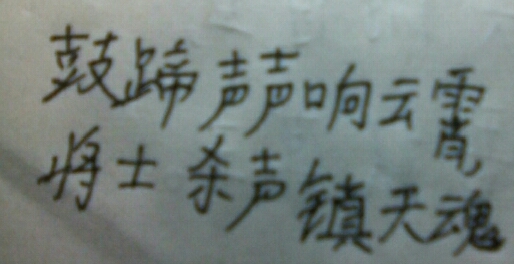 鼓蹄声声响云霄,
将士杀声镇天魂